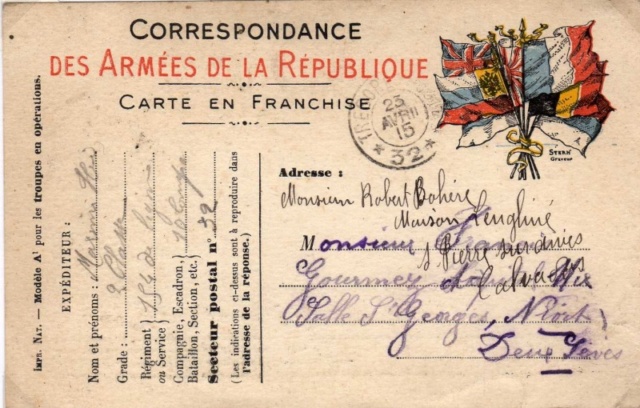 CORRESPONDANCE
DES ARMÉES DE LA RÉPUBLIQUE
CARTE EN FRANCHISE
TRÉSOR
23
AVRIL
15
* 32 *
STERN
Graveur
Imps. Nat. — Modèle A¹ pour les troupes en opérations.
EXPÉDITEUR :
Nom et prénoms :
Grade : 2 Classe
Régiment ou Service) 154 de ligne
Compagnie, Escadron, Bataillon, Section, etc.) 10 Compagnie
Secteur postal n° 32
(Les indications ci-dessus sont à reproduire dans l'adresse de la réponse.)
Adresse :
Monsieur Robert Bohère
Maison
Monsieur
St Pierre sur dives
Gourmez
Calvados
Salle St Georges, Niort
Deux Sèves